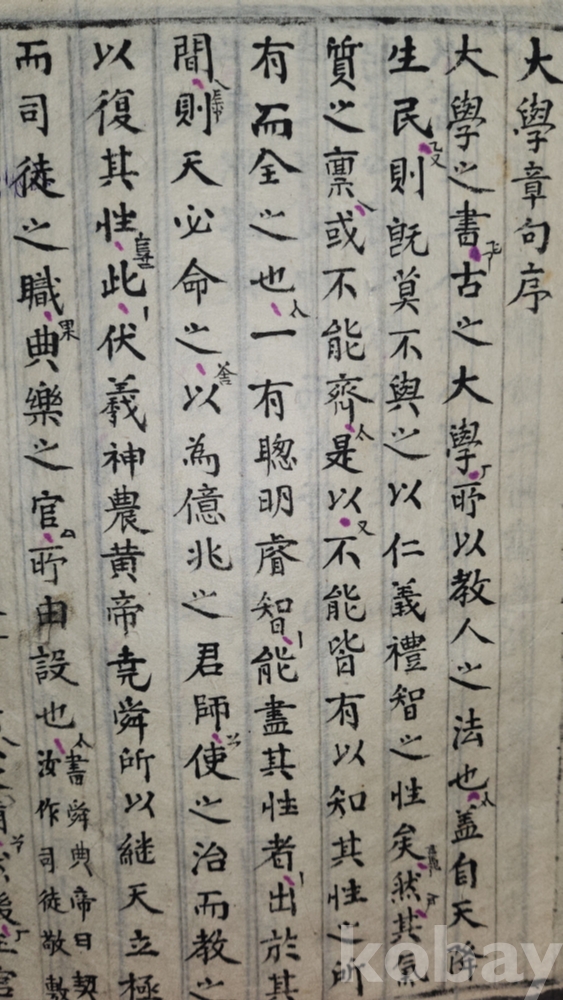 大學章句序
大學之書古之大學所以教人之法也盖自天降
生民則旣莫不與之以仁義禮智之性矣然其氣
質之稟或不能齊是以不能皆有以知其性之所
有而全之也一有聰明睿智能盡其性者出於其
間則天必命之以為億兆之君師使之治而教之
以復其性此伏羲神農黃帝堯舜所以継天立極
而司徒之職典樂之官所由設也
書舜典帝曰契
汝作司徒敬敷
kobay